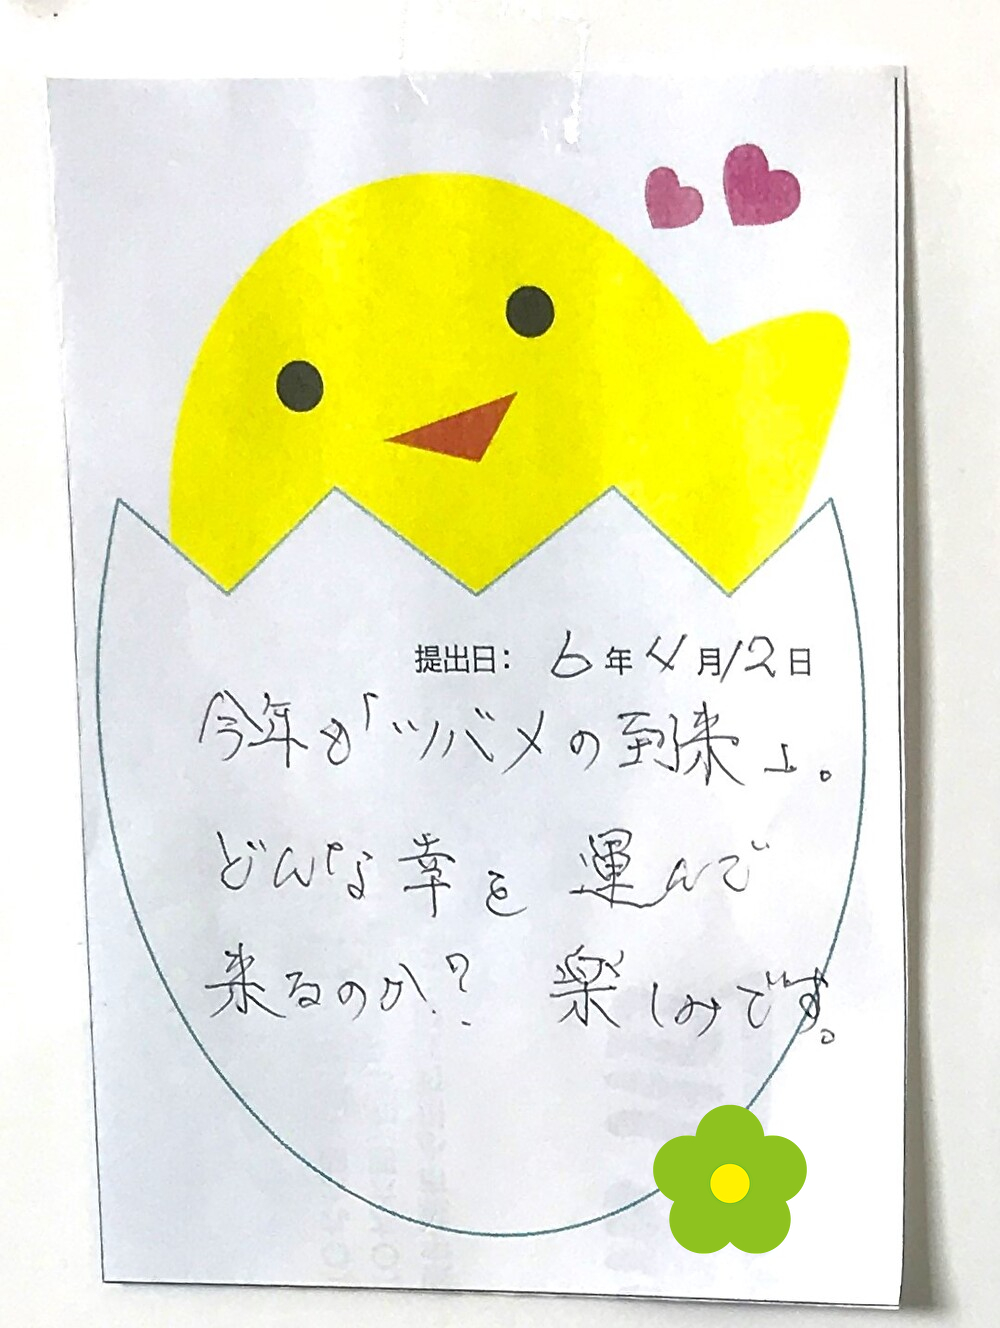 提出日: 6年4月12日
今年も「ツバメの到来」。
どんな幸を 運んで
来るのか? 楽しみです。